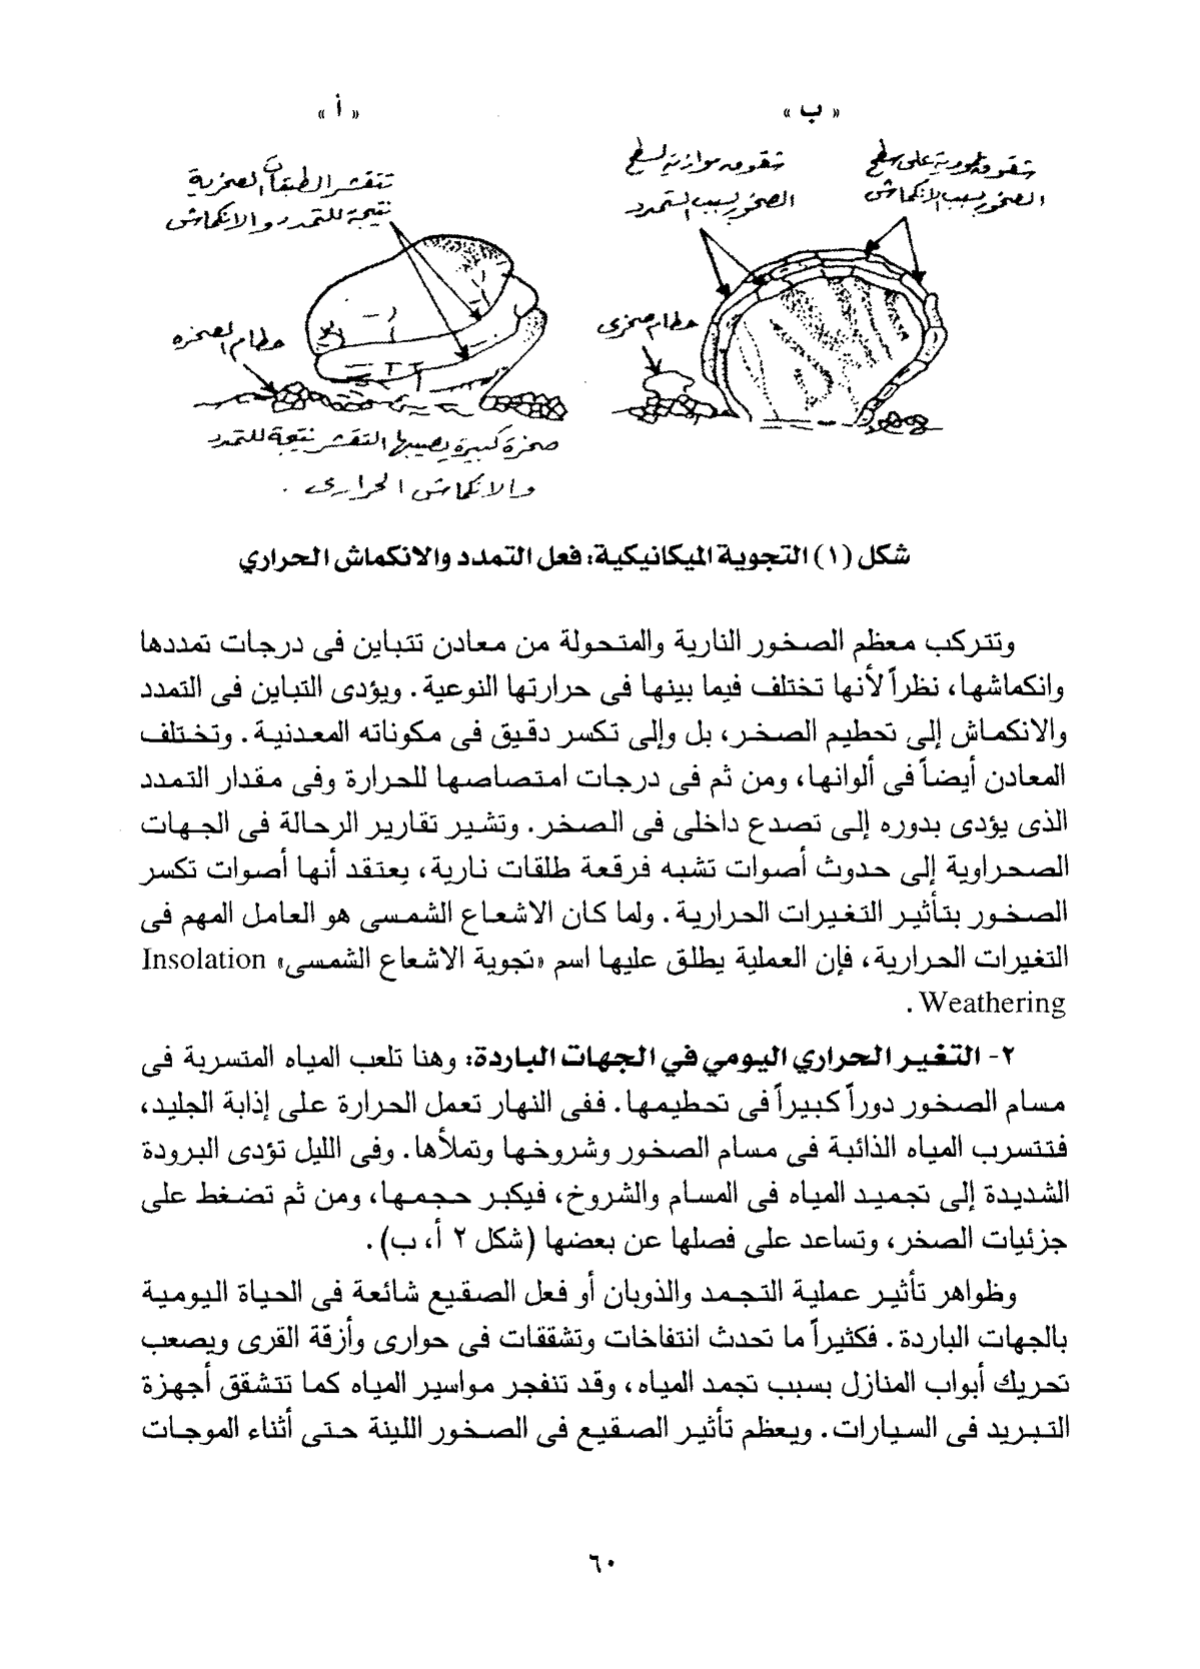 « أ »
تتقشر الطبقات الصخرية
نتيجة للتمدد والانكماش
حطام الصخره
صخرة كبيرة يصيبها التقشر نتيجة للتمدد
والانكماش الحرارى .
« ب »
شقوق عمودية على سطح
الصخور بسبب الانكماش
شقوق موازية لسطح
الصخور بسبب التمدد
حطام صخرى
شكل (١) التجوية الميكانيكية: فعل التمدد والانكماش الحراري
وتتركب معظم الصخور النارية والمتحولة من معادن تتباين فى درجات تمددها
وانكماشها، نظراً لأنها تختلف فيما بينها فى حرارتها النوعية. ويؤدى التباين فى التمدد
والانكماش إلى تحطيم الصخر، بل وإلى تكسر دقيق فى مكوناته المعدنية. وتختلف
المعادن أيضاً فى ألوانها، ومن ثم فى درجات امتصاصها للحرارة وفى مقدار التمدد
الذى يؤدى بدوره إلى تصدع داخلى فى الصخر. وتشير تقارير الرحالة فى الجهات
الصحراوية إلى حدوث أصوات تشبه فرقعة طلقات نارية، يعتقد أنها أصوات تكسر
الصخور بتأثير التغيرات الحرارية. ولما كان الاشعاع الشمسى هو العامل المهم فى
التغيرات الحرارية، فإن العملية يطلق عليها اسم «تجوية الاشعاع الشمسى» Insolation
Weathering .
٢- التغير الحراري اليومي في الجهات الباردة: وهنا تلعب المياه المتسربة فى
مسام الصخور دوراً كبيراً فى تحطيمها. ففى النهار تعمل الحرارة على إذابة الجليد،
فتتسرب المياه الذائبة فى مسام الصخور وشروخها وتملأها. وفى الليل تؤدى البرودة
الشديدة إلى تجميد المياه فى المسام والشروخ، فيكبر حجمها، ومن ثم تضغط على
جزئيات الصخر، وتساعد على فصلها عن بعضها (شكل ٢ أ، ب).
وظواهر تأثير عملية التجمد والذوبان أو فعل الصقيع شائعة فى الحياة اليومية
بالجهات الباردة. فكثيراً ما تحدث انتفاخات وتشققات فى حوارى وأزقة القرى ويصعب
تحريك أبواب المنازل بسبب تجمد المياه، وقد تنفجر مواسير المياه كما تتشقق أجهزة
التبريد فى السيارات. ويعظم تأثير الصقيع فى الصخور اللينة حتى أثناء الموجات
٦٠